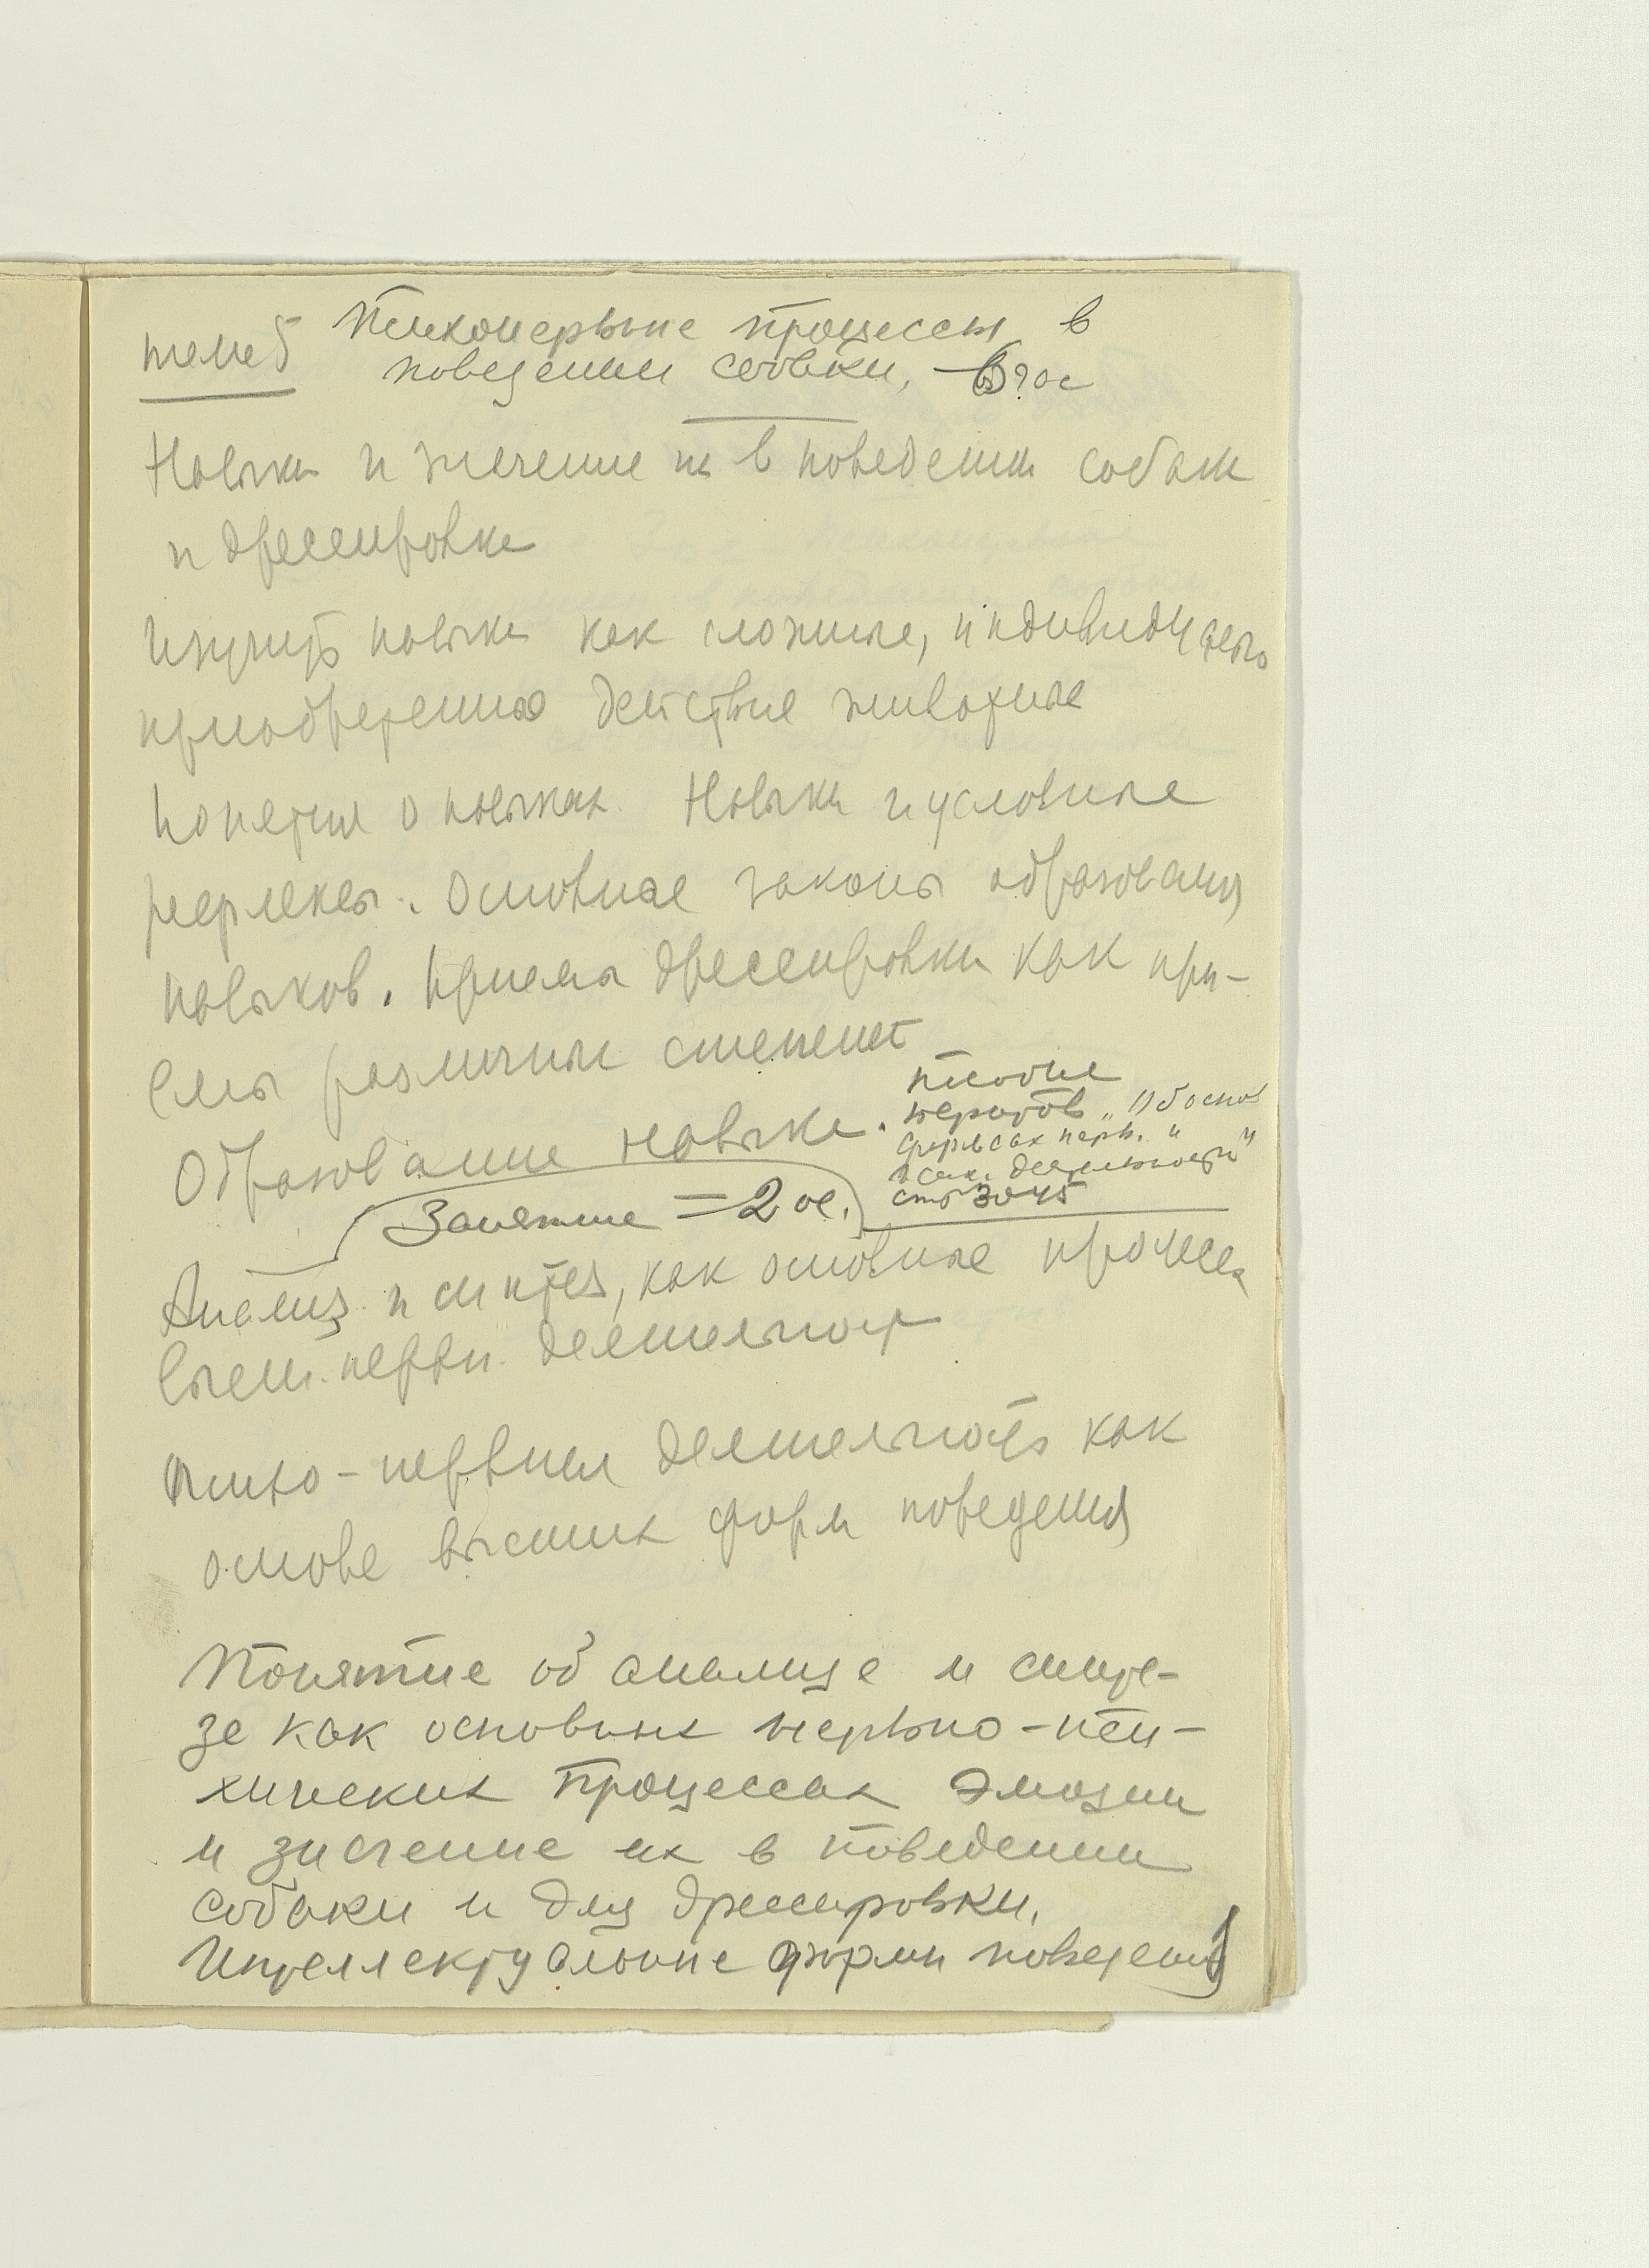 тема 5 Психонервные процессы в
поведении собаки, – 6 час
Навыки и значение их в поведении собаки
и дрессировке
Изучить навыки как сложные, индивидуально
приобретенные действие животные
Понятие о навыках. Навыки и условные
рефлексы. Основные законы образования
навыков. Приемы дрессировки как при-
емы различных степеней
Образование навыка.
Занятие = 2
пособие
"Об основ
формах нерв. "
деятельности"
стр 30 45
Анализ и синтез, как основные процесс
высш. нервн. деятельност
Психо-нервная деятельность как
основе высших форм поведения
Понятие об анализе и синте-
зе как основных нервно-пси-
хических процессах Эмоции
и значение их в поведении
собаки и для дрессировки.
Интеллектуальные формы поведения